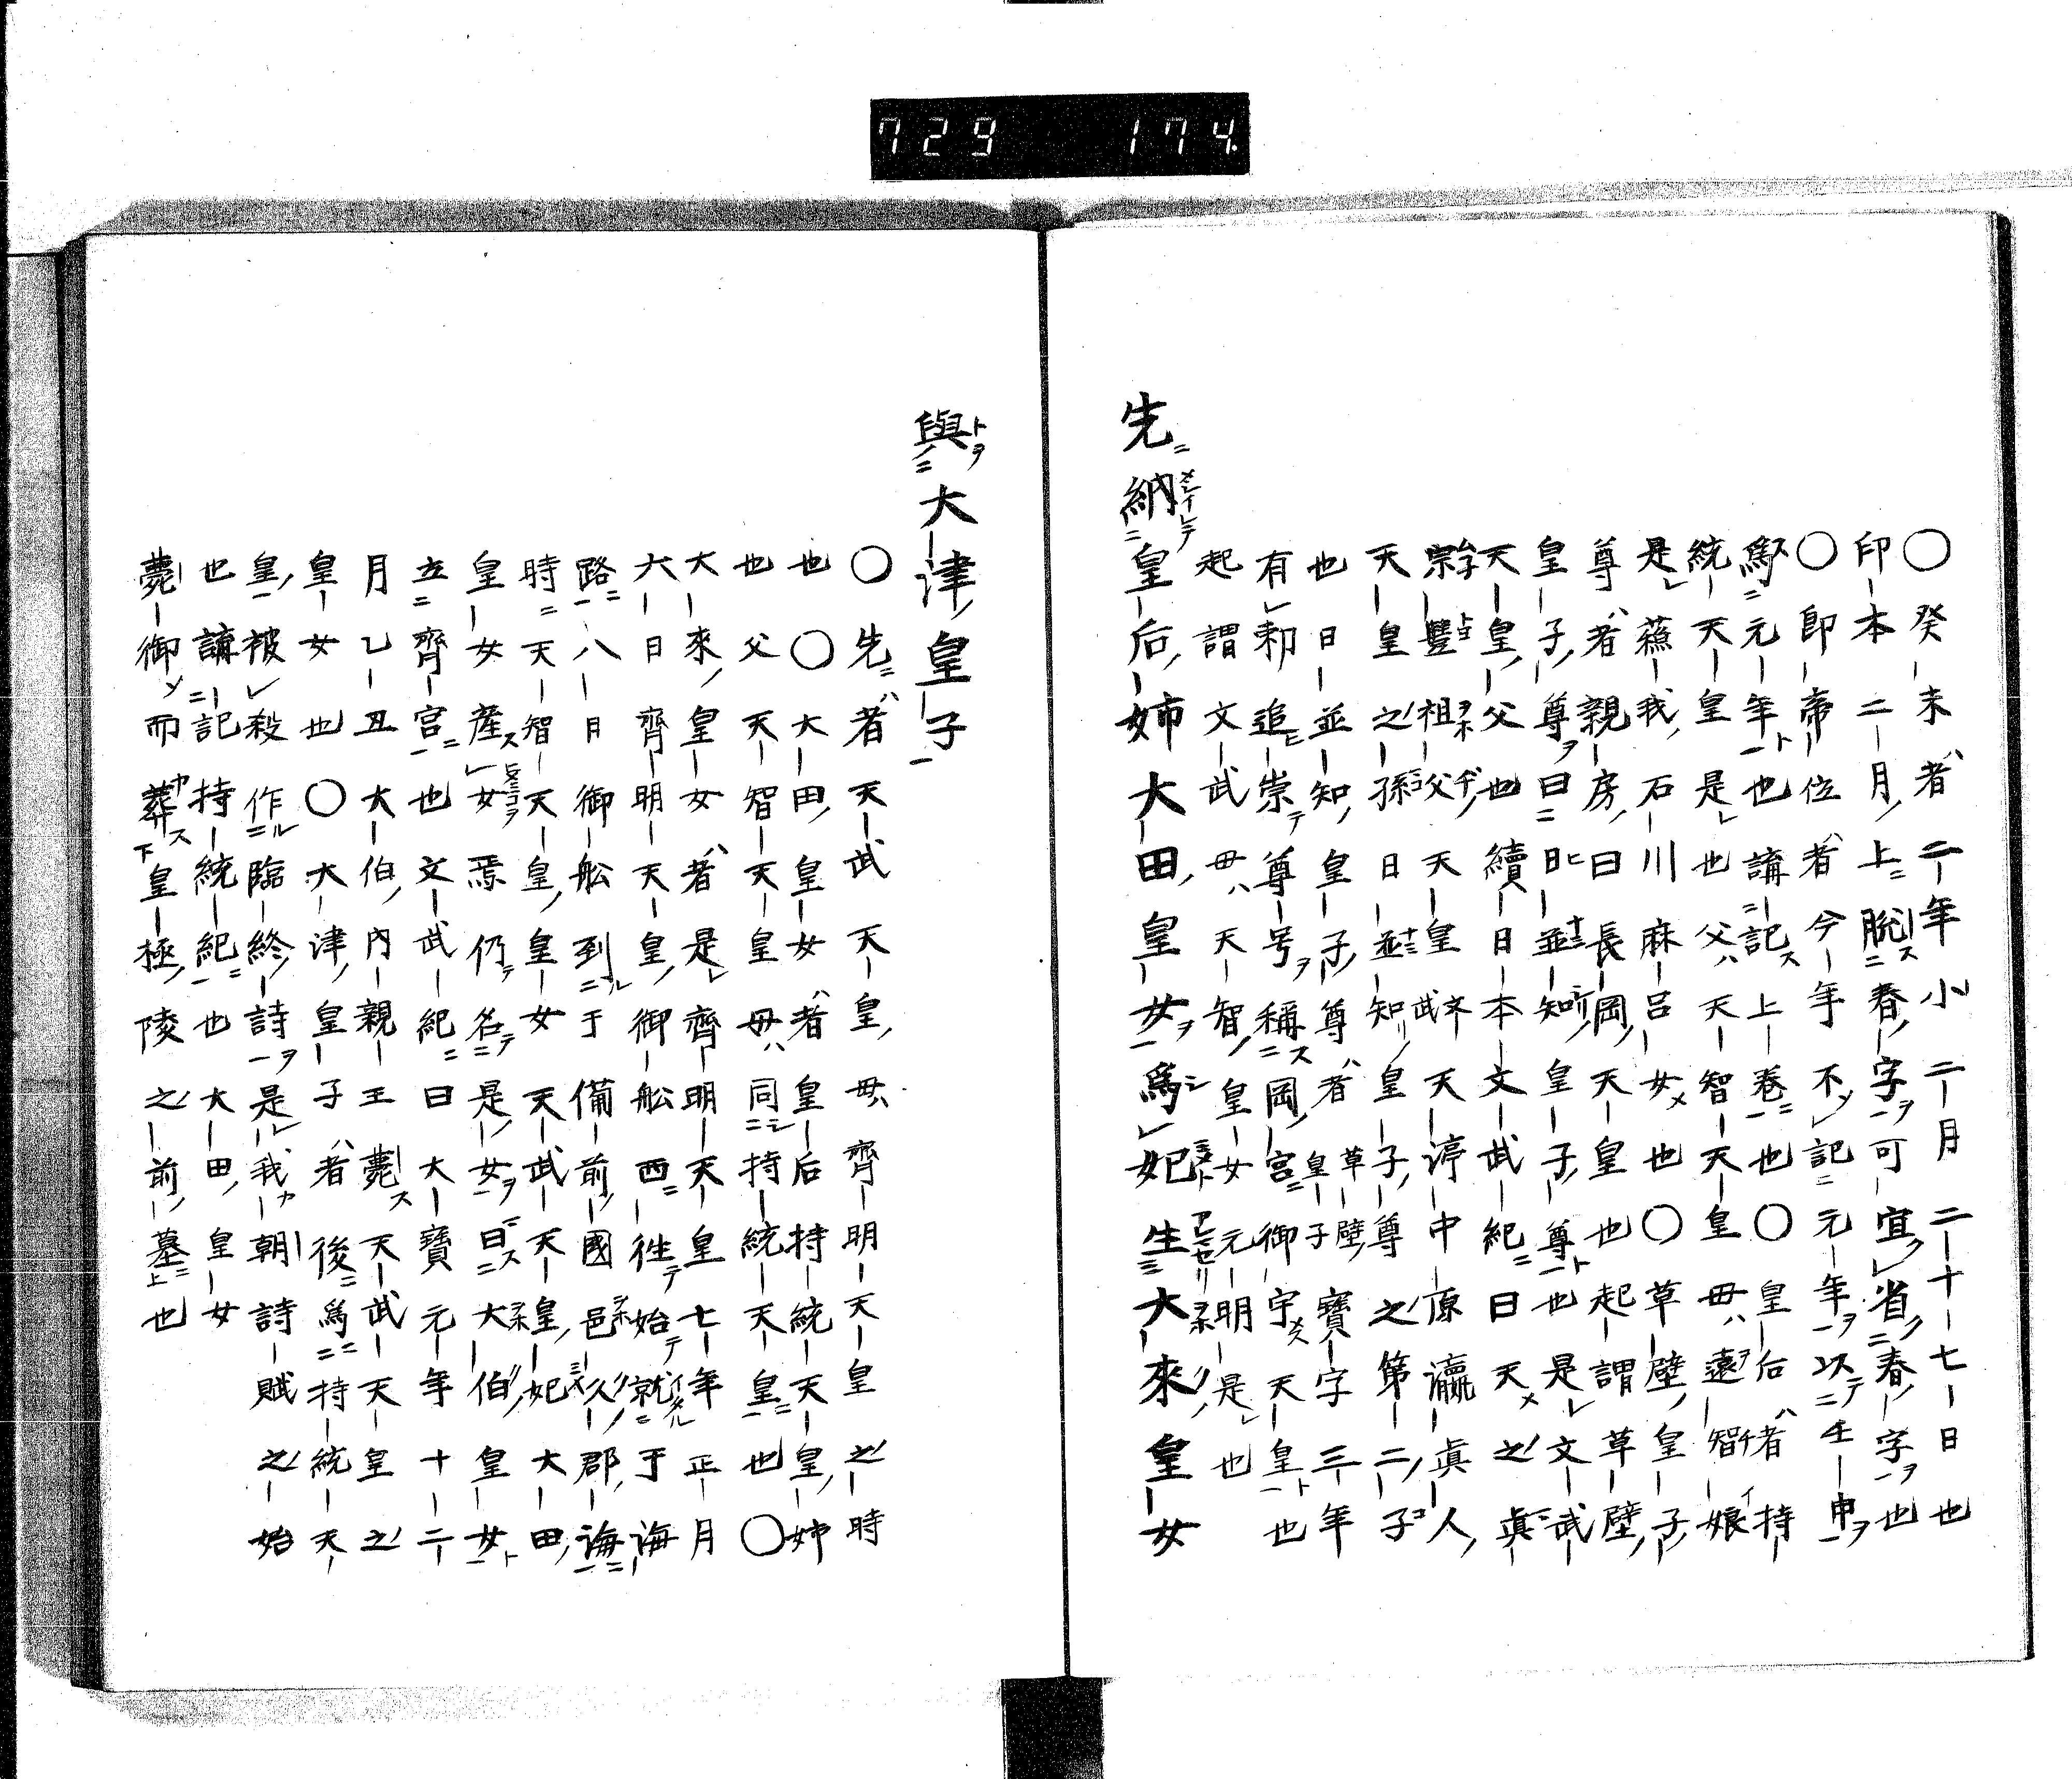 729 174.
○癸未者二年小二月二十七日也
印本二月上脱春字可宜省春字也
○即帝位者今年不記元年以壬申
為元年也講記上巻也○皇后者持
統天皇是也父天智天皇母遠智娘
是蘓我石川麻呂女也○草壁皇子
尊者親房曰長岡天皇也起謂草壁
皇子尊曰日並知皇子尊也是文武
天皇父也續日本文武紀曰天之真
宗豐祖父天皇天渟中原瀛真人
天皇之孫日並知皇子尊之第二子
也日並知皇子尊者草壁皇子寶字三年
有勅追崇尊号稱岡宮御宇天皇也
起謂文武母天智皇女元明是也
先納皇后姉大田皇女爲妃生大來皇女
與大津皇子
○先者天武天皇母齊明天皇之時
也○大田皇女者皇后持統天皇姉
也父天智天皇母同持統天皇也○
大來皇女者是齊明天皇七年正月
六日齊明天皇御舩西徃始就于海
路八月御舩到于備前國邑久郡海
時天智天皇皇女天武天皇妃大田
皇女産女焉仍名是女曰大伯皇女
立齊宮也文武紀曰大寶元年十二
月乙丑大伯内親王薨天武天皇之
皇女也○大津皇子者後為持統天
皇被殺作臨終詩是我朝詩賦之始
也講記持統紀也大田皇女
薨御而葬皇極陵之前墓也